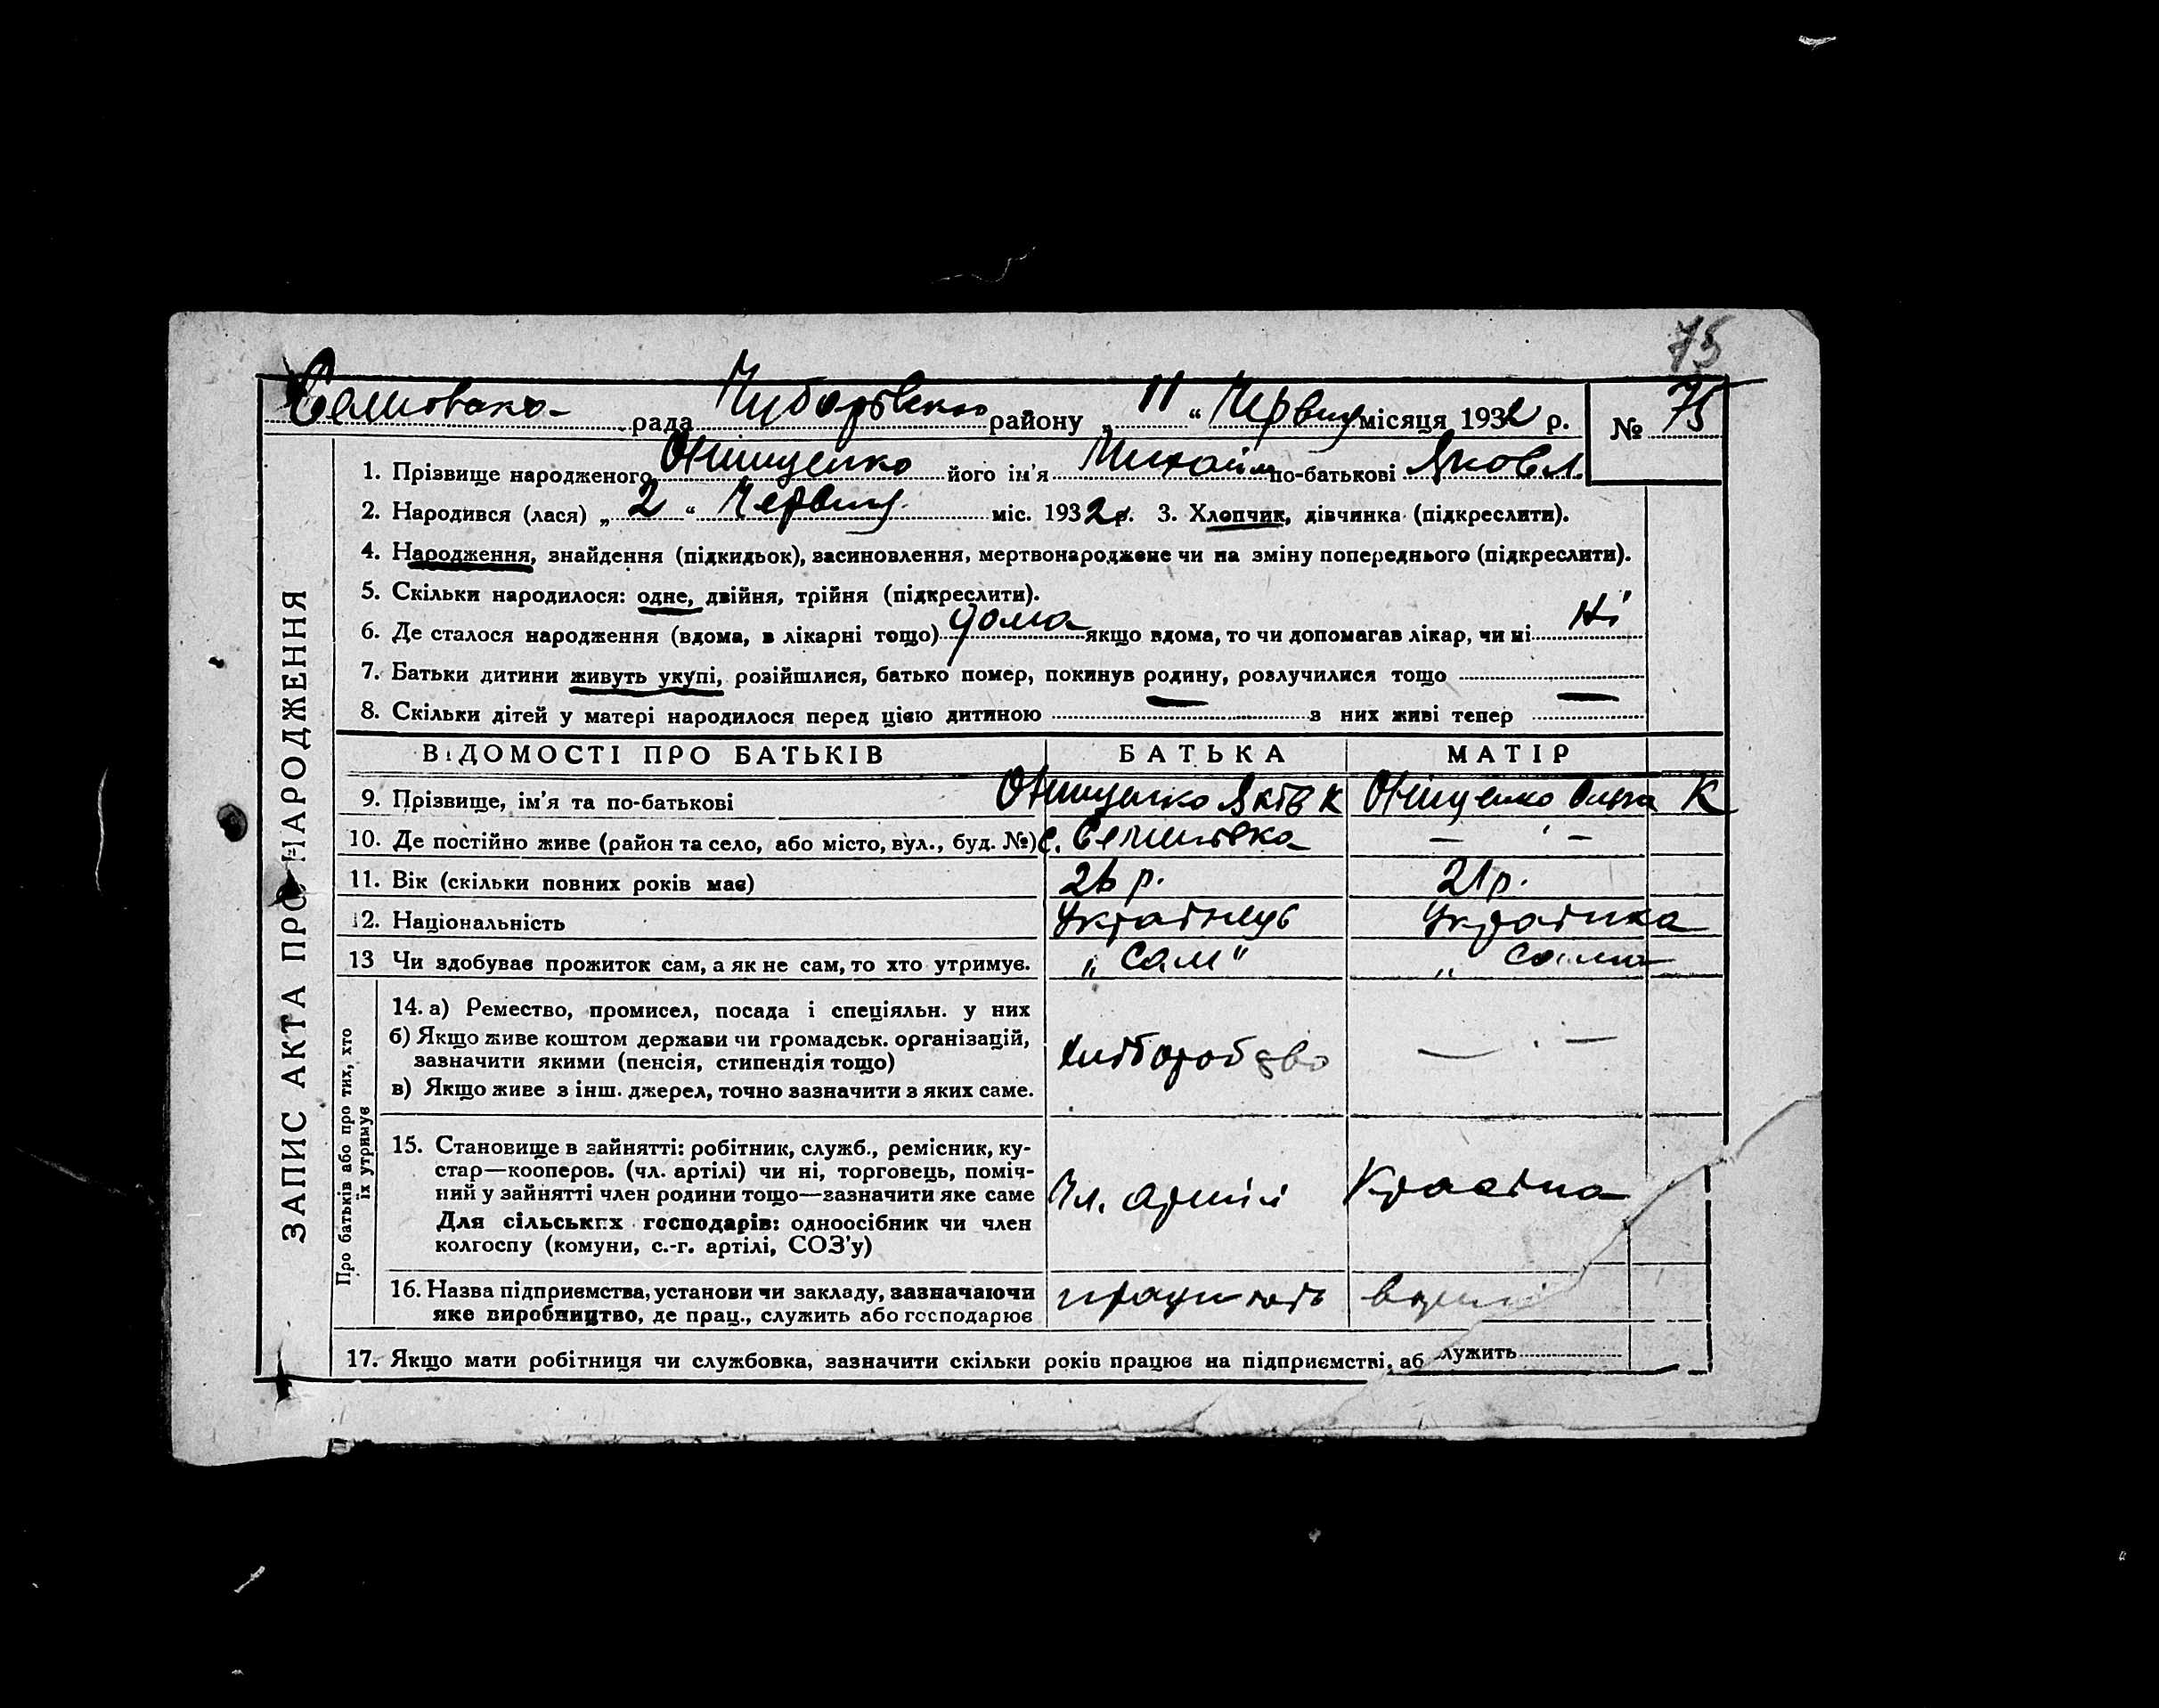 75
рада Чубарівсько району „ 11 “ Червня місяця 1932 р. № 75
1. Прізвище народженого Онищенко його ім'я Михайло по-батькові Яковл.
2. Народився (лася) „ 2 “ Червня міс. 1932 р. 3. Хлопчик, дівчинка (підкреслити).
4. Народження, знайдення (підкидьок), засиновлення, мертвонароджене чи на зміну попереднього (підкреслити).
5. Скільки народилося: одне, двійня, трійня (підкреслити).
6. Де сталося народження (вдома, в лікарні тощо) дома якщо вдома, то чи допомагав лікар, чи ні Ні
7. Батьки дитини живуть укупі, розійшлися, батько помер, покинув родину, розлучилися тощо
8. Скільки дітей у матері народилося перед цією дитиною — з них живі тепер —
ЗАПИС АКТА ПРО НАРОДЖЕННЯ
ВІДОМОСТІ ПРО БАТЬКІВ БАТЬКА МАТІР
9. Прізвище, ім'я та по-батькові Онищенко Яків К Онищенко Ольга К
10. Де постійно живе (район та село, або місто, вул., буд. №) с. Семенівка — ' —
11. Вік (скільки повних років має) 26 р. 21 р.
12. Національність Українець Українка
13 Чи здобував прожиток сам, а як не сам, то хто утримує. „ Сам “ „ Сама
Про батьків або про тих, хто
їх утримує
14. а) Ремество, промисел, посада і спеціяльн. у них
б) Якщо живе коштом держави чи громадськ. організацій,
зазначити якими (пенсія, стипендія тощо) хліборобство — . —
в) Якщо живе з інш. джерел, точно зазначити з яких саме.
15. Становище в зайнятті: робітник, служб., ремісник, ку-
стар—кооперов. (чл. артілі) чи ні, торговець, поміч-
ний у зайнятті член родини тощо—зазначити яке саме Чл. артілі
Для сільських господарів: одноосібник чи член
колгоспу (комуни, с.-г. артілі, СОЗ'у)
16. Назва підприємства, установи чи закладу, зазначаючи працюють
яке виробництво, де прац., служить або господарює
17. Якщо мати робітниця чи службовка, зазначити скільки років працює на підприємстві, аб лужить